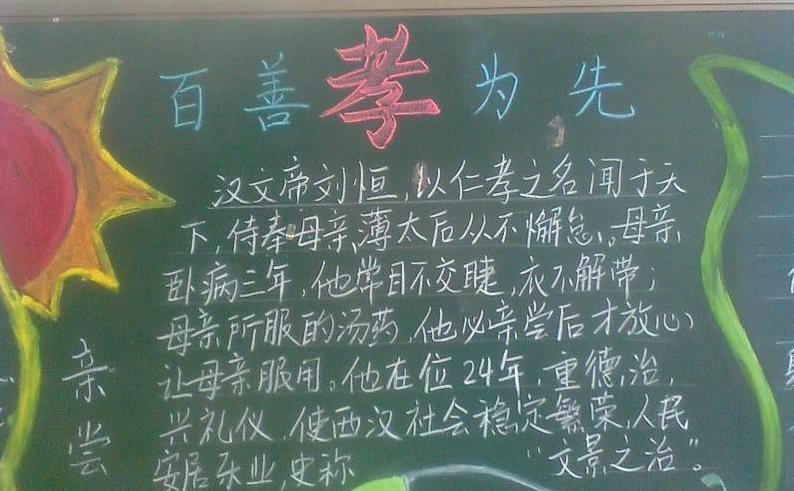 百善孝为先
汉文帝刘恒,以仁孝之名闻于天
下,侍奉母亲薄太后从不懈怠。母亲
卧病三年,他常目不交睫,衣不解带;
母亲所服的汤药,他必亲尝后才放心
让母亲服用。他在位24年,重德治,
兴礼仪,使西汉社会稳定繁荣,人民
安居乐业,史称“文景之治”。
亲尝